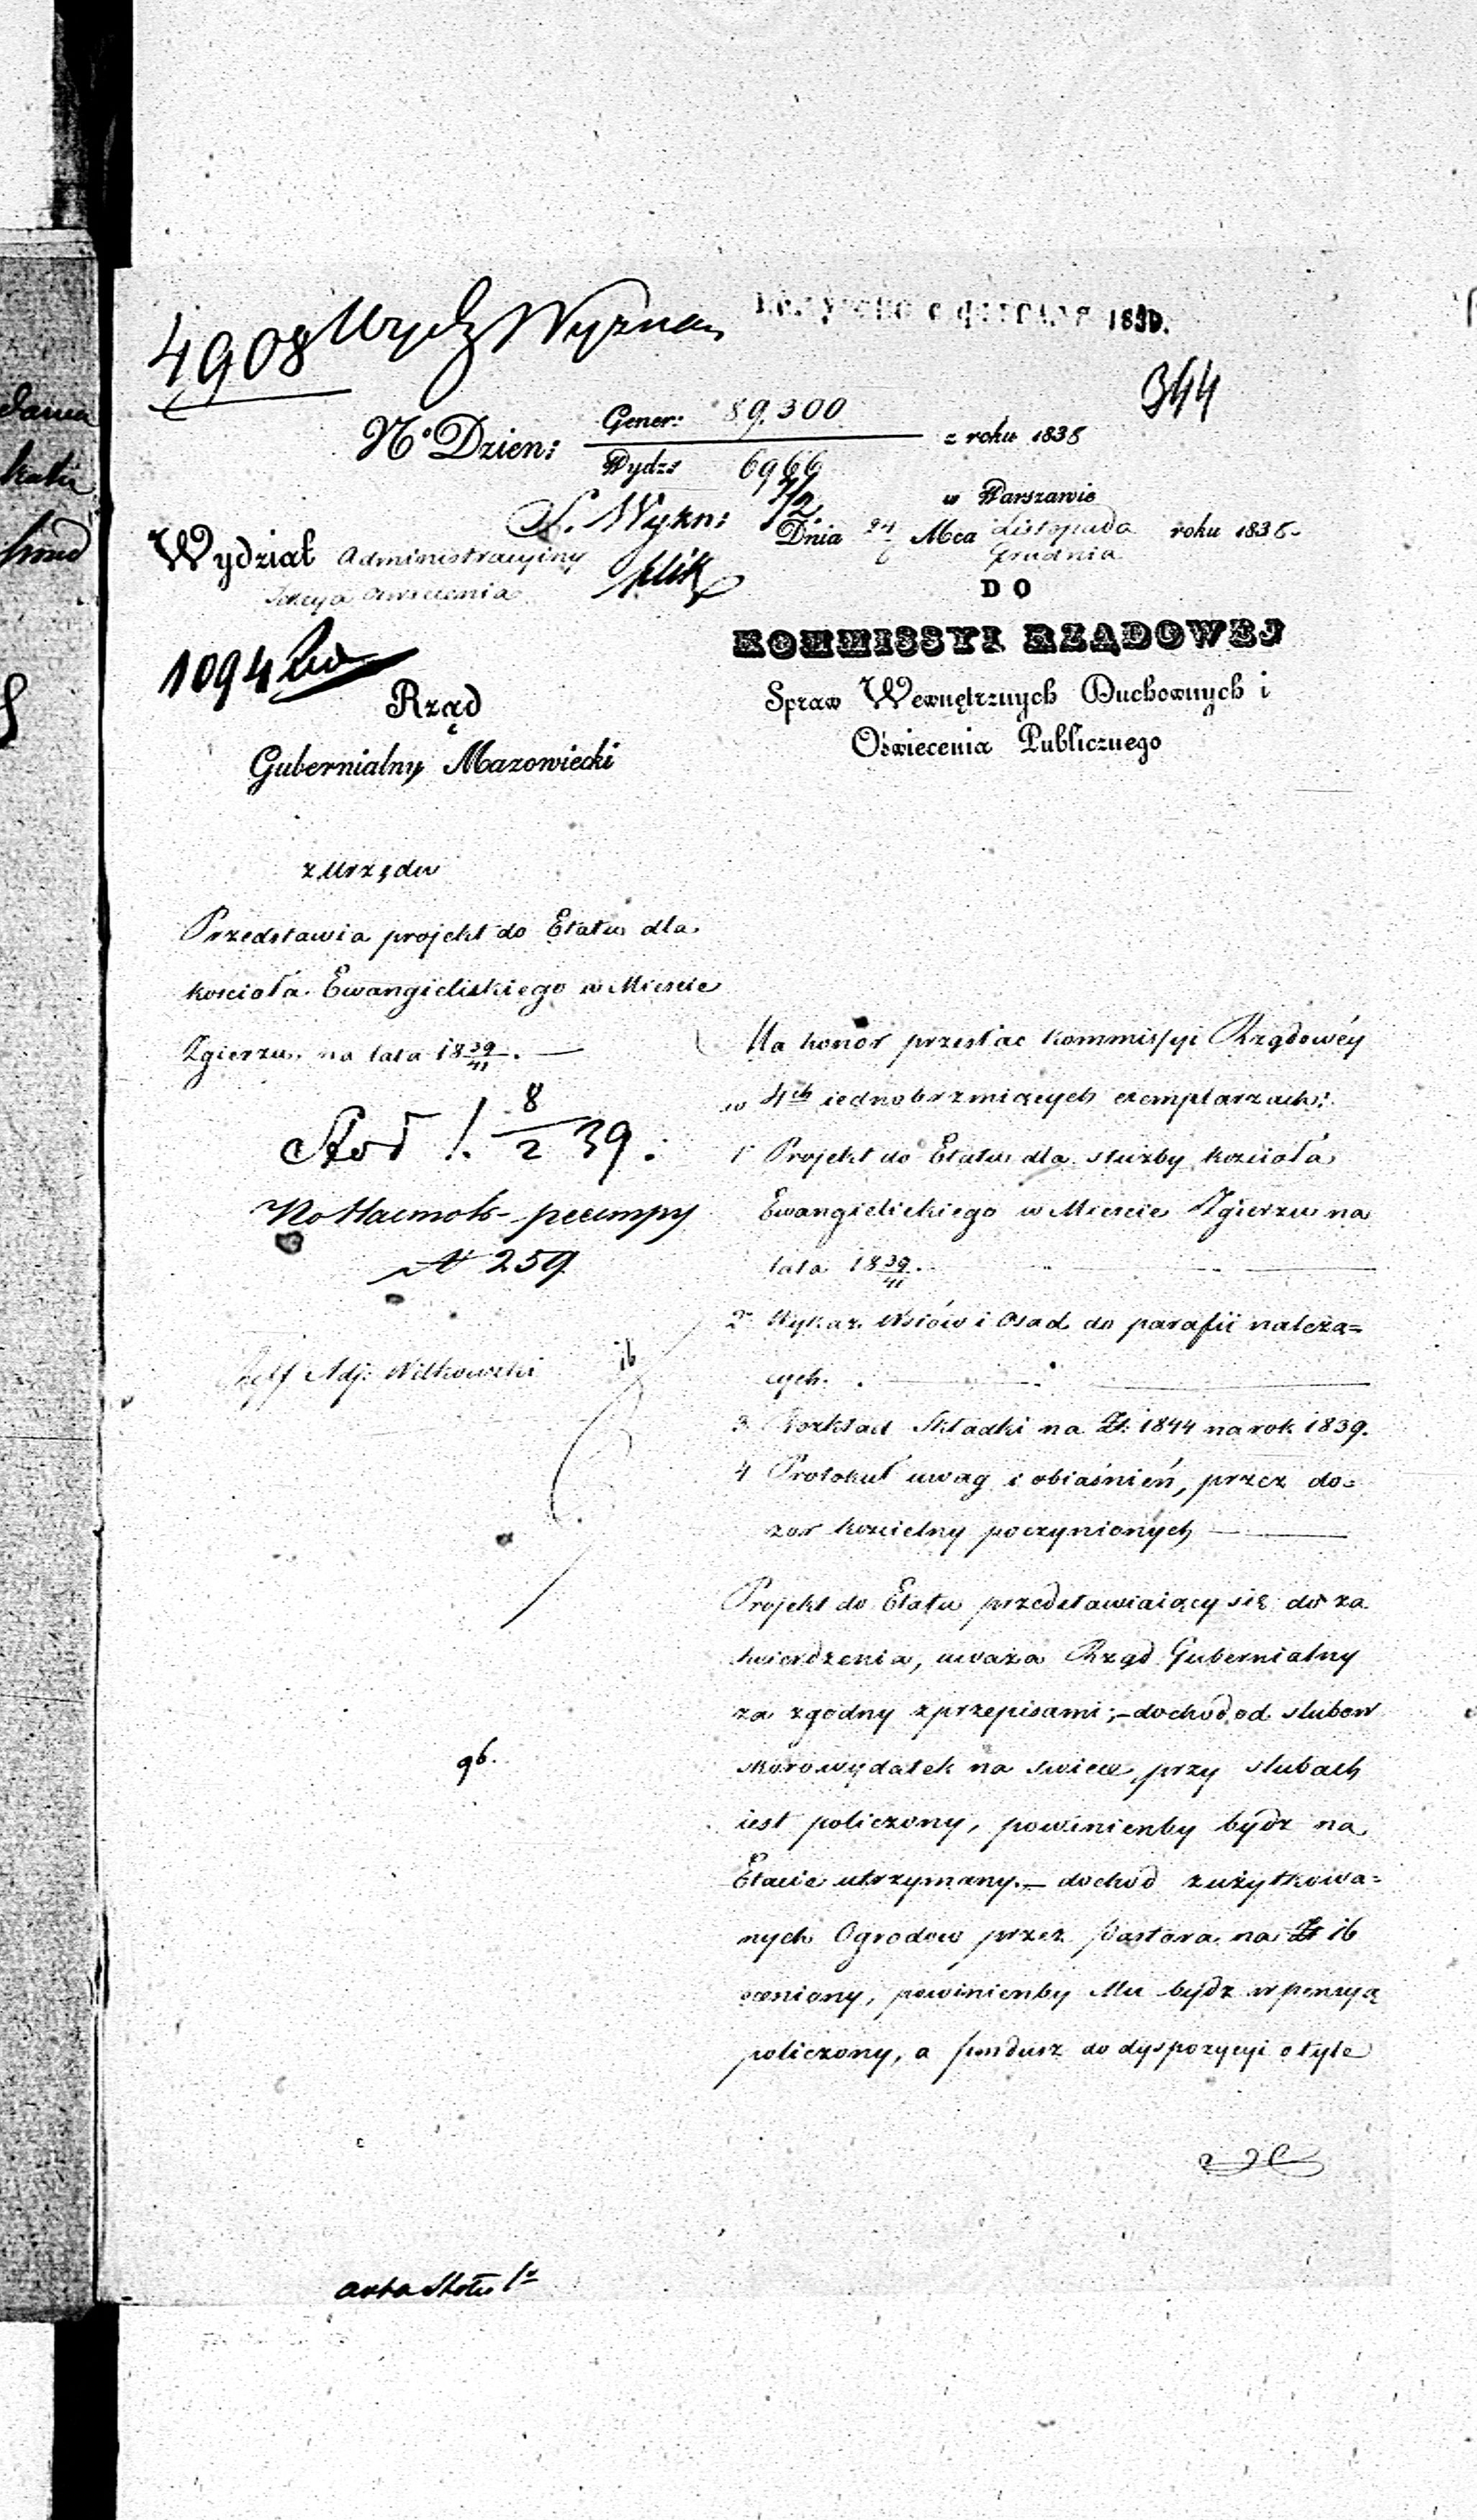 4908 Wydz Wyznań
1839.
344
No Dzien: Gener: 89.300 z roku 1838
Wydz: 6966
S. Wyzn: 7/2
w Warszawie
Dnia 24/6 Mca Listopada/Grudnia roku 1838
Wydział Administracyiny
Sekcya Oswiecenia
DO
KOMMISSYI RZĄDOWEJ
Spraw Wewnętrznych Duchownych i
Oświecenia Publicznego
1094
Rząd
Gubernialny Mazowiecki
z Urzędu
Przedstawia projekt do Etatu dla
kościoła Ewangieliskiego w Miescie
Zgierzu na lata 18 39/41. —
8/2 39.
№ 259
Adj: Witkowski
ib
96.
Ma honor przesłac Kommissyi Rządowéy
w 4ch iednobrzmiących exemplarzach:
1 Projekt do Etatu dla służby kościoła
Ewangielickiego w Miescie Zgierzu na
lata 18 39/41.
2 Wykaz Wsiów i Osad do parafii należą=
cych.
3 Rozkład Składki na Zł: 1844 na rok 1839.
4 Protokuł uwag i obiaśnień, przez do=
zor kościelny poczynionych —
Projekt do Etatu przedstawiaiący się do za
twierdzenia, uważa Rząd Gubernialny
za zgodny z przepisami; – dochod od slubow
skoro wydatek na swiece przy slubach
iest policzony, powinienby bydz na
Etacie utrzymany. – dochod z użytkowa=
nych Ogrodow przez Pastora na Zł 16
oceniony, powinienby Mu bydz w pensyą
policzony, a fundusz do dyspozycyi o tyle